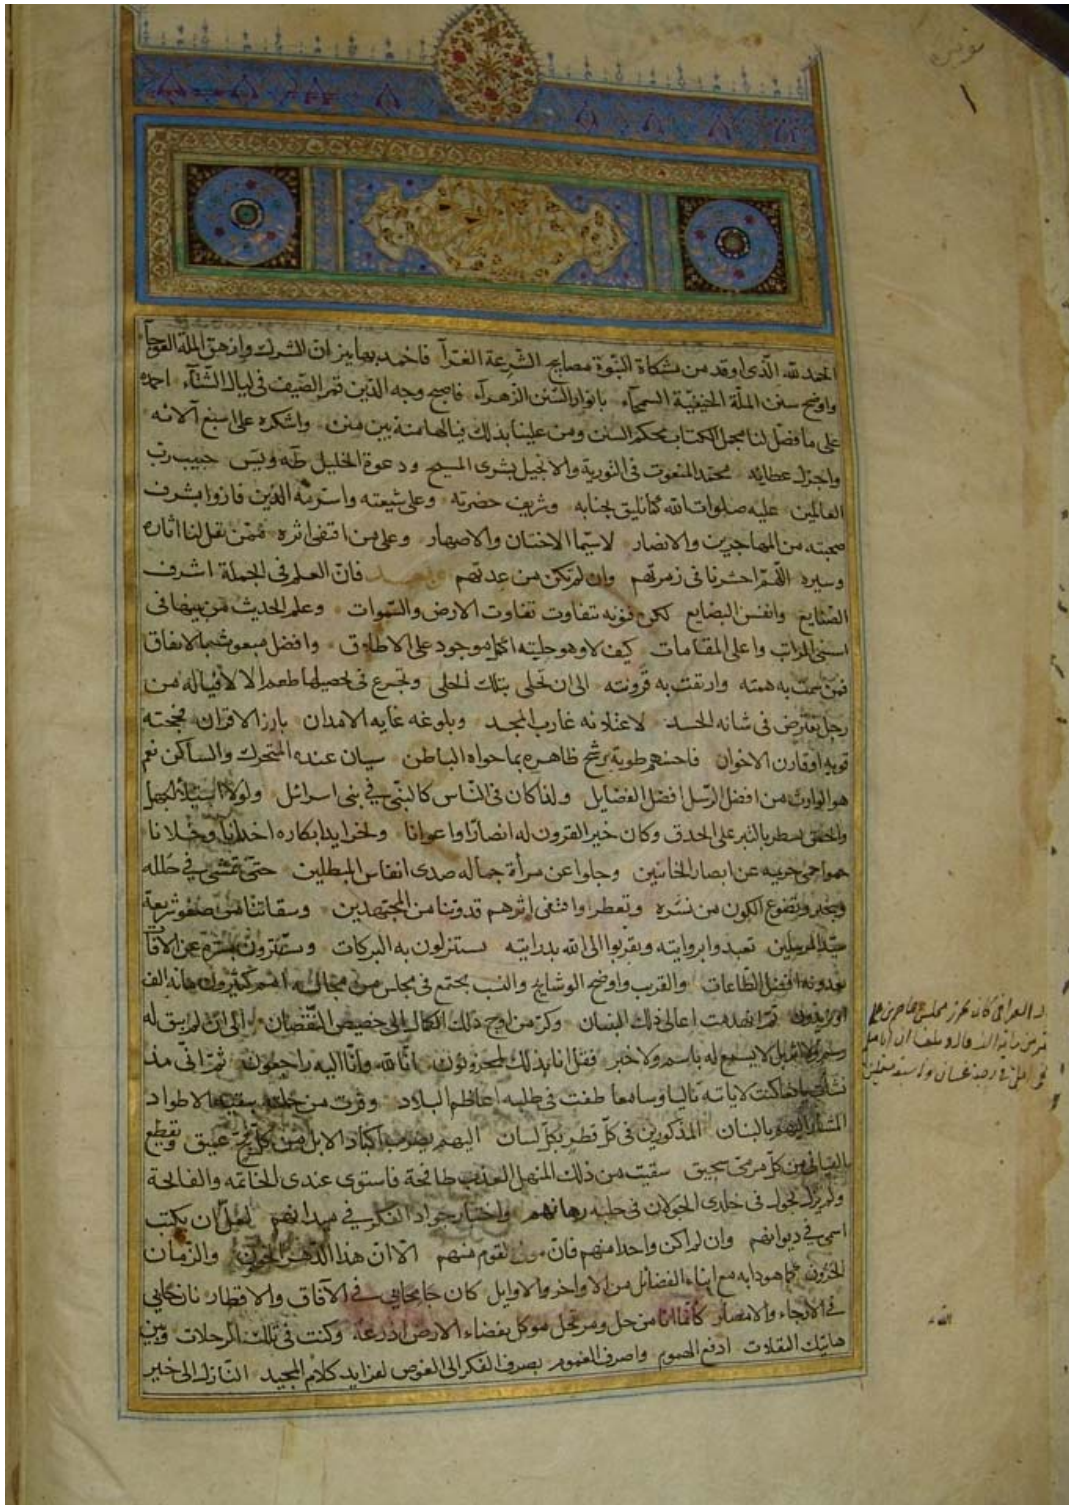 الحمد لله الذى اوقد من مشكاة النبوة مصابيح الشريعة الغرآ فاخمد بها نيران الشرك وازهق الملة العوجآ
واوضح سنن الملة الحنيفية السمحآء بانوار السنن الزهرآء فاصبح وجه الدين قمر الصيف فى ليال الشتآء احمده
على ما فصل لنا مجمل الكتاب بمحكم السنن ومن علينا بذلك فيالها منة بين منن واشكره على اسبغ آلائه
واجزل عطايه محمد المنعوت فى التورية والانجيل بشرى المسيح ودعوة الخليل طه ويس حبيب رب
العالمين عليه صلوات الله كما تليق بجنابه وشريف حضرته وعلى شيعته واسرته الذين فازوا بشرف
صحبته من المهاجرين والانصار لاسيما الاختان والاصهار وعلى من اقتفى اثره فمن نقل لنا اثاره
وسيره اللهم احشرنا فى زمرتهم وان لم نكن من عدتهم فان العلم فى الجملة اشرف
الصنايع وانفس البضايع لكن فنونه تتفاوت تفاوت الارض والسموات وعلم الحديث من بينها فى
اسنى المراتب واعلى المقامات كيف لا وهو حلية اكمل موجود على الاطلاق وافضل مبعوث بالاتفاق
فمن سمت به همته وارتقت به قرونته الى ان تحلى بتلك الحلى وتجرع فى تحصيلها طعم الالا فياله من
رجل يفترض فى شانه الحسد لاعتلائه غارب المجد وبلوغه غاية الامد ان بارز الاقران فحجته
قوية او قارن الاخوان فاحسنهم طوية يرشح ظاهره بما حواه الباطن سيان عنده المتحرك والساكن نعم
هو الوارث من افضل الرسل افضل الفضايل ولذا كان فى الناس كالنبى فى بنى اسرائل
والحقيق بسطر بالتبر على الحدق وكان خير القرون له انصارا واعوانا ولخرايد ابكاره اخدانا وخلانا
حموا حمى حريمه عن ابصار الخائنين وجلوا عن مرأة جماله صدى انفاس المبطلين حتى تمشى فى حلله
وتضوع الكون من نشره وتعطر واقتفى اثرهم قدوتنا من المجتهدين وسقاتنا من صفو شريعة
سيد المرسلين تعبدوا بروايته وتقربوا الى الله بدرايته يستنزلون به البركات
افضل الطاعات والقرب واوضح الوشايج والنسب يجتمع فى مجلس من مجالسه
ثم انهدمت اعالى ذلك البنيان وكر من اوج ذلك الكمال الى حضيض النقصان الى ان لم يبق له
رسم ولا اثر بل لا يسمع له باسم ولا خبر فقل انا بذلك لمحزونون انا لله وانا اليه راجعون ثم انى مذ
كنت لاياته تاليا وسامعا طفت فى طلبه اعاظم البلاد
المشار اليهم بالبنان المذكورين فى كل قطر بكل لسان اليهم يضرب اكباد الابل من كل فج عميق ويقطع
الفيافى من كل مرمى سحيق سقيت من ذلك المنهل العذب طافحة فاستوى عندى الخاتمه والفاتحة
ولم يزل يجول فى خلدى الجولان فى حلبة رهانهم واختبار جواد الفكر فى ميدانهم لعل ان يكتب
اسمى فى ديوانهم وان لم اكن واحدا منهم فان لقوم منهم الا ان هذا الدهر الخؤن والزمان
الحرون كما هو دابه مع ابناء الفضائل من الاواخر والاوايل كان حاديا بى فى الآفاق والاقطار
فى الارجاء والامصار كأنما انا من حل ومرتحل موكل بفضاء الارض اذرعه وكنت فى تلك الرحلات وبين
هاتيك النقلات ادفع الهموم واصرف الغموم بصرف الفكر الى الغوص لفرايد كلام المجيد النازل الى خير